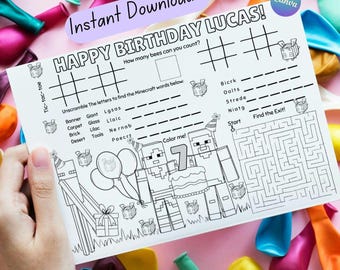 Instant Download
Canva
HAPPY BIRTHDAY LUCAS!
How many bees can you count?
TIC-TAC-TOE
Unscramble The letters to find the Minecraft words below.
Banner Giant Lgsas
Carpet Glass Llaic
Brick Lilac Nernab
Desert Tools Paecrt
Bicrk
Oolts
Strede
Niatg
Color me!
7
Start
Find the Exit!